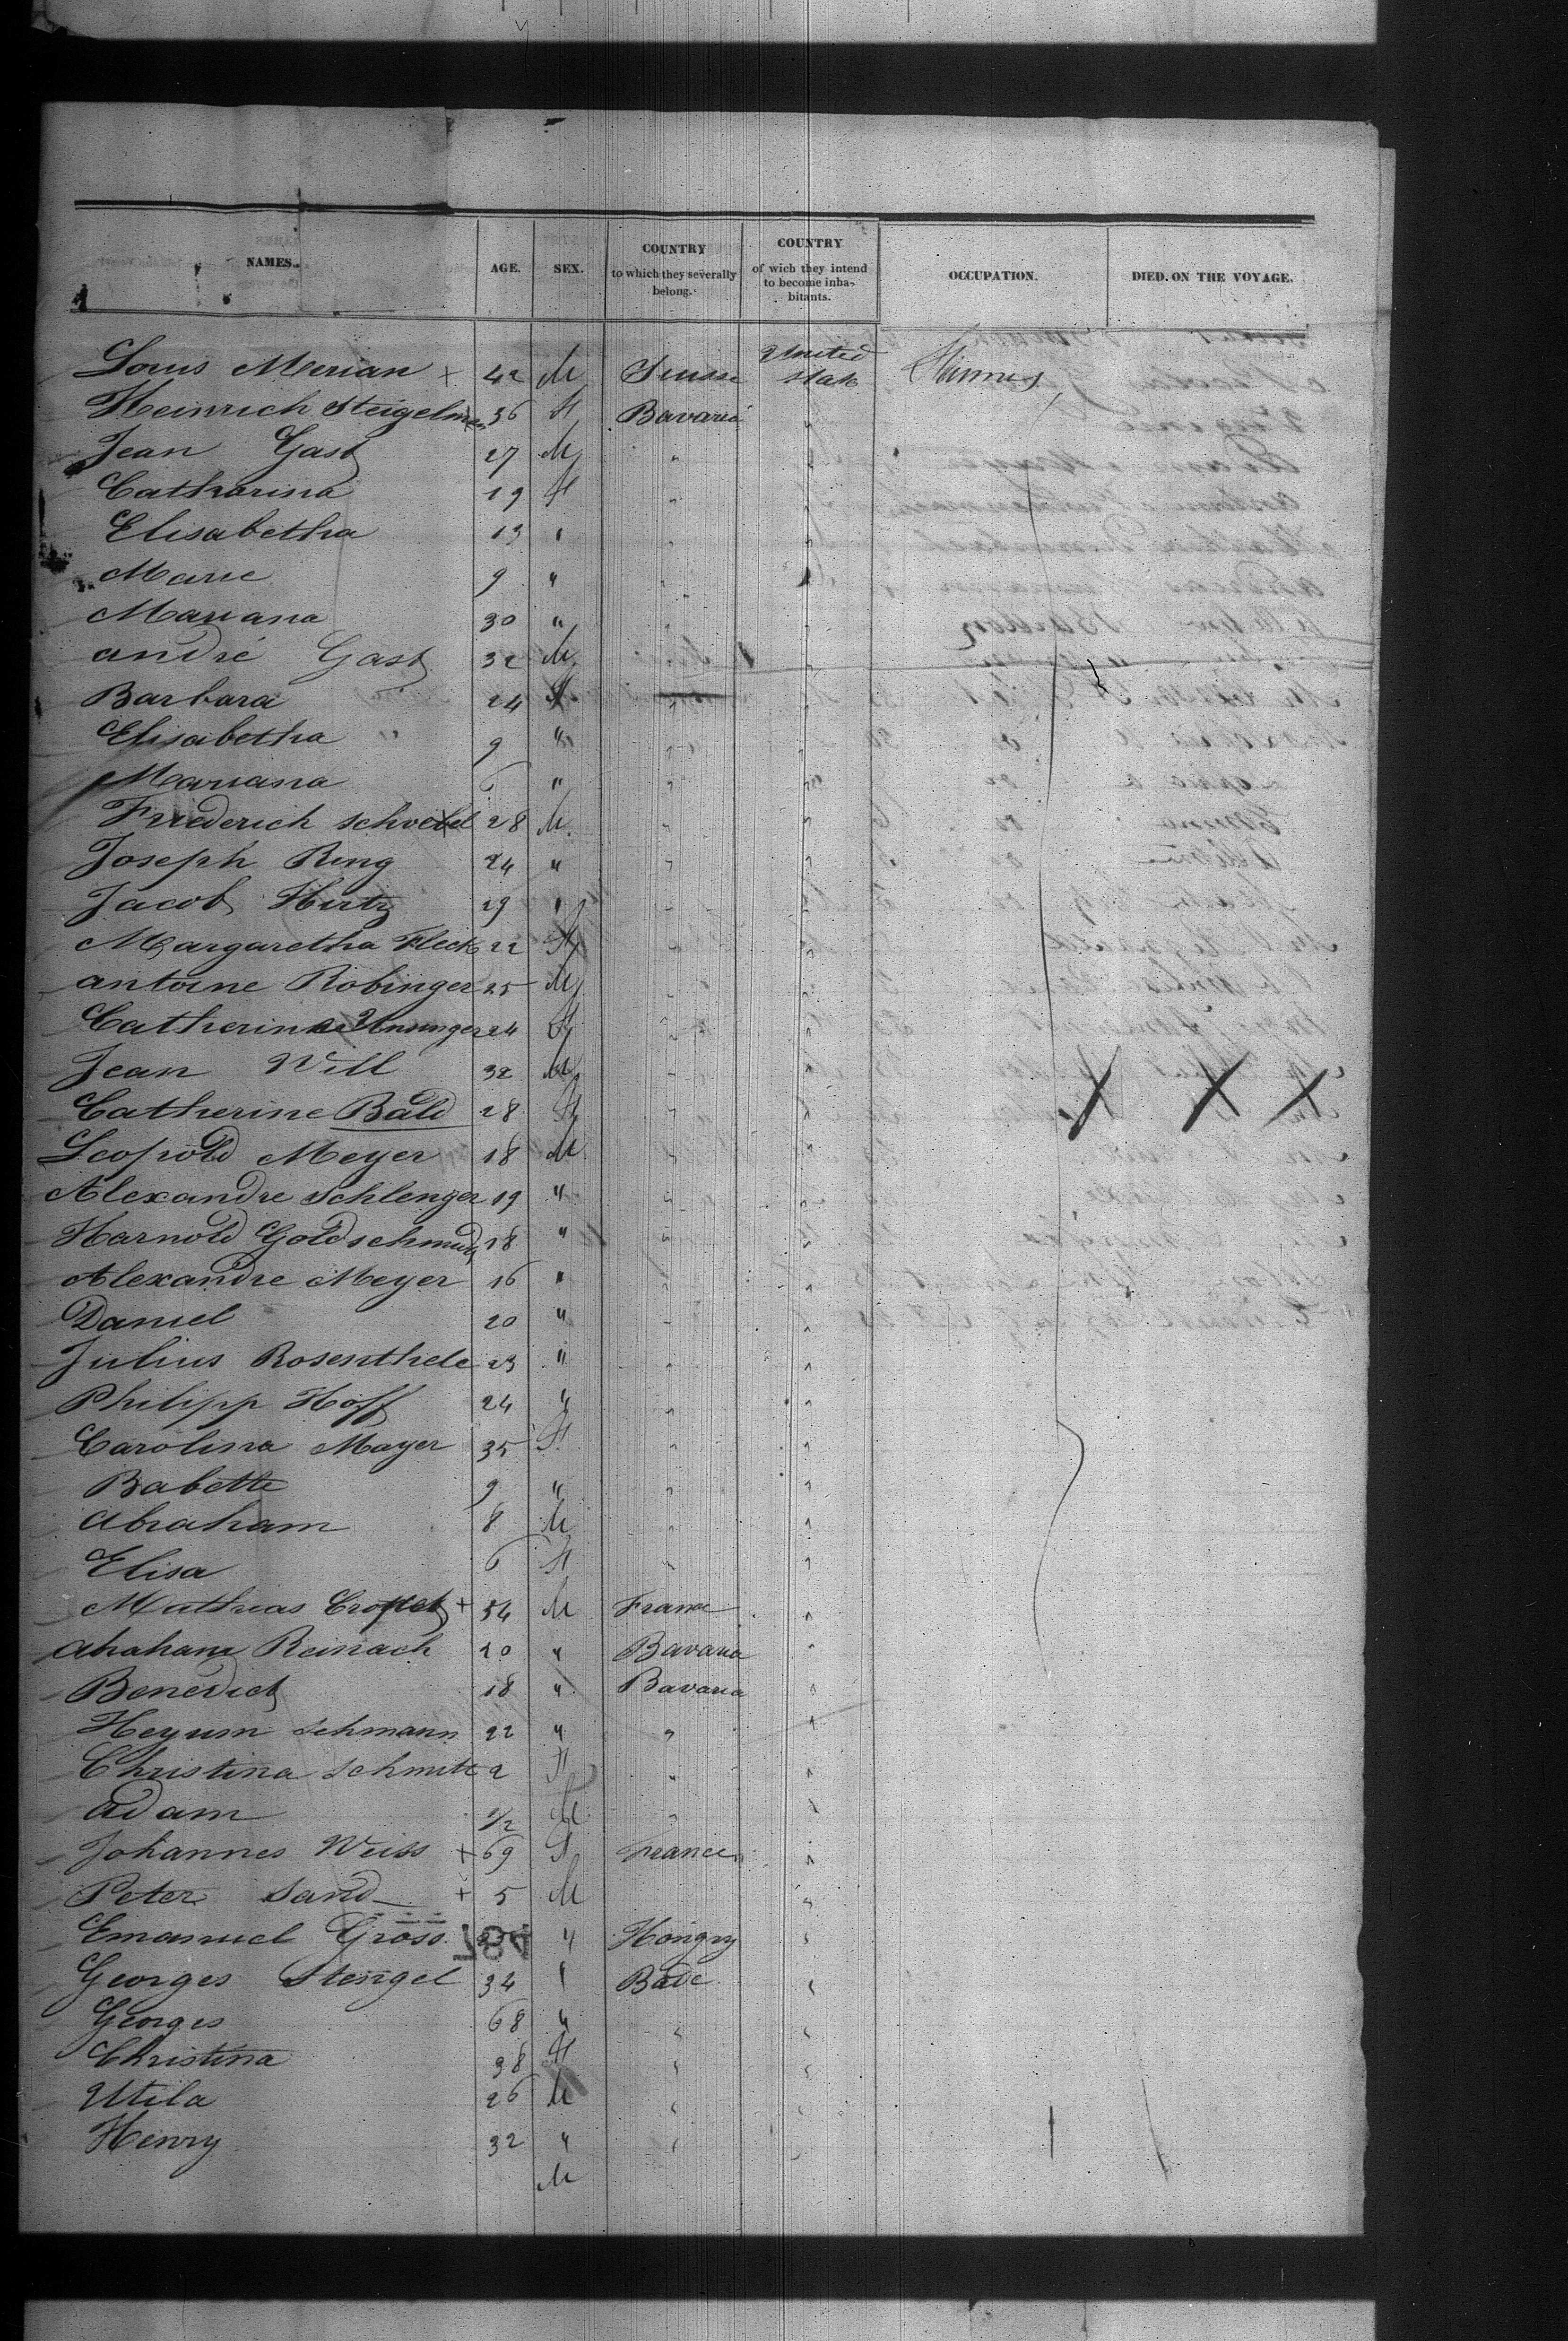 NAMES. AGE. SEX. COUNTRY to which they severally belong. COUNTRY of wich they intend to become inhabitants. OCCUPATION. DIED. ON THE VOYAGE.
Louis Merian + 42 M Suisse United States
Heinrich Steigelman 36 Bavaria "
Jean Gast 27 M " "
Catharina 19 " "
Elisabetha 13 " " "
Marie 9 " " "
Mariana 30 " " "
André Gast 32 M "
Barbara 24 " "
Elisabetha " 9 " " "
Mariana 6 " " "
Friederich 28 M. " "
Joseph Ring 24 " " "
Jacob Hirtz 29 " " "
Margaretha Fleck 22 " "
Antoine Robinger 25 M " "
Catherina 24 " "
Jean Will 32 M " "
Catherine Bald 28 " "
Leopold Meyer 18 M " "
Alexandre Schlenger 19 " " "
Harnold Goldschmidt 18 " " "
Alexandre Meyer 16 " " "
Daniel 20 " " "
Julius Rosenthele 23 " " "
Philipp Hoff 24 " " "
Carolina Mayer 35 " "
Babette 9 " " "
Abraham 8 M " "
Elisa 6 " "
Mathias + 54 M France "
Abraham Reinach 20 " Bavaria "
Benedict 18 " Bavaria "
Heyum 22 " " "
Christina Schmitt 2 " "
Adam 1/2 M " "
Johannes Weiss + 69 France "
Peter Sand + 5 M "
Emanuel Gross " Hongry "
Georges Stengel 34 " Bade "
Georges 68 " " "
Christina 38 " "
Utila 26 M " "
Henry 32 " " "
M